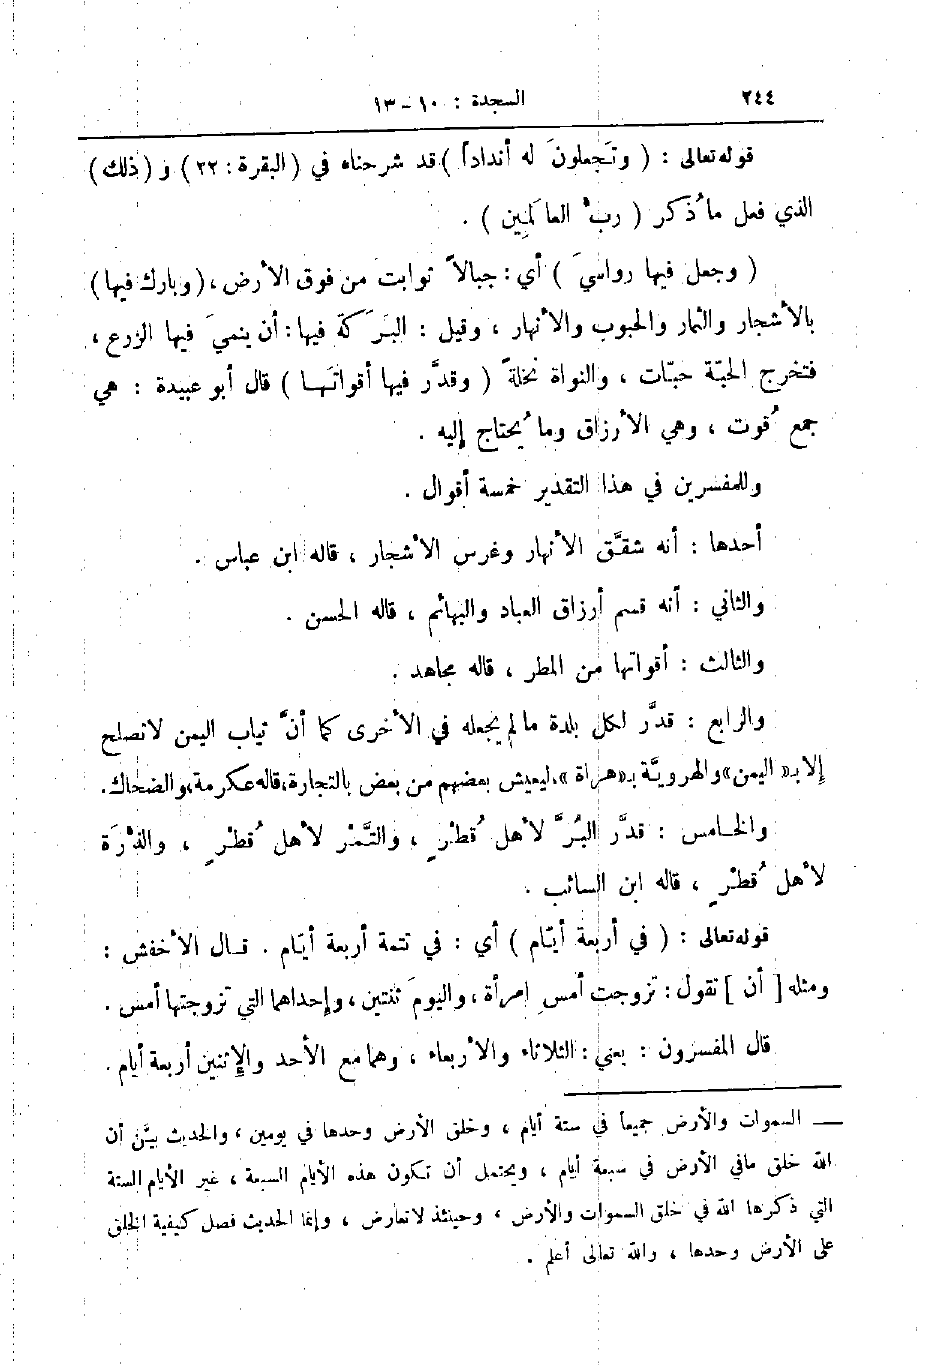 ٢٤٤ السجدة : ١٠ – ١٣
قوله تعالى : ( وتَجعلونَ له أنداداً ) قد شرحناه في ( البقرة : ٢٢ ) و ( ذلك )
الذي فعل ما ذُكر ( ربُّ العالَمِين ) .
( وجعل فيها رواسيَ ) أي : جبالاً ثوابت من فوق الأرض ، ( وبارك فيها )
بالأشجار والثمار والحبوب والأنهار ، وقيل : البَرَكة فيها : أن ينميَ فيها الزرع ،
فتخرج الحبّة حبّات ، والنواة نخلةً ( وقدَّر فيها أقواتَهـا ) قال أبو عبيدة : هي
جمع قُوت ، وهي الأرزاق وما يُحتاج إليه .
وللمفسرين في هذا التقدير خمسة أقوال .
أحدها : أنه شقَّق الأنهار وغرس الأشجار ، قاله ابن عباس .
والثاني : أنه قسم أرزاق العباد والبهائم ، قاله الحسن .
والثالث : أقواتها من المطر ، قاله مجاهد .
والرابع : قدَّر لكل بلدة ما لم يجعله في الأخرى كما أنَّ ثياب اليمن لا تصلح
إلا بـ« اليمن » والهرويَّة بـ« هراة » ، ليعيش بعضهم من بعض بالتجارة ، قاله عكرمة ، والضحاك .
والخامس : قدَّر البُرَّ لأهل قُطْرٍ ، والتَّمْر لأهل قُطْرٍ ، والذُّرَة
لأهل قُطْرٍ ، قاله ابن السائب .
قوله تعالى : ( في أربعة أيّام ) أي : في تتمة أربعة أيّام . قـال الأخفش :
ومثله [ أن ] تقول : تزوجت أمسِ امرأة ، واليومَ ثنتين ، وإحداهما التي تزوجتها أمس .
قال المفسرون : يعني : الثلاثاء والأربعاء ، وهما مع الأحد والإثنين أربعة أيام .
— السموات والأرض جميعاً في ستة أيام ، وخلق الأرض وحدها في يومين ، والحديث بيَّن أن
الله خلق ما في الأرض في سبعة أيام ، ويحتمل أن تكون هذه الأيام السبعة ، غير الأيام الستة
التي ذكرها الله في خلق السموات والأرض ، وحينئذ لا تعارض ، وإنما الحديث فصل كيفية الخلق
على الأرض وحدها ، والله تعالى أعلم .